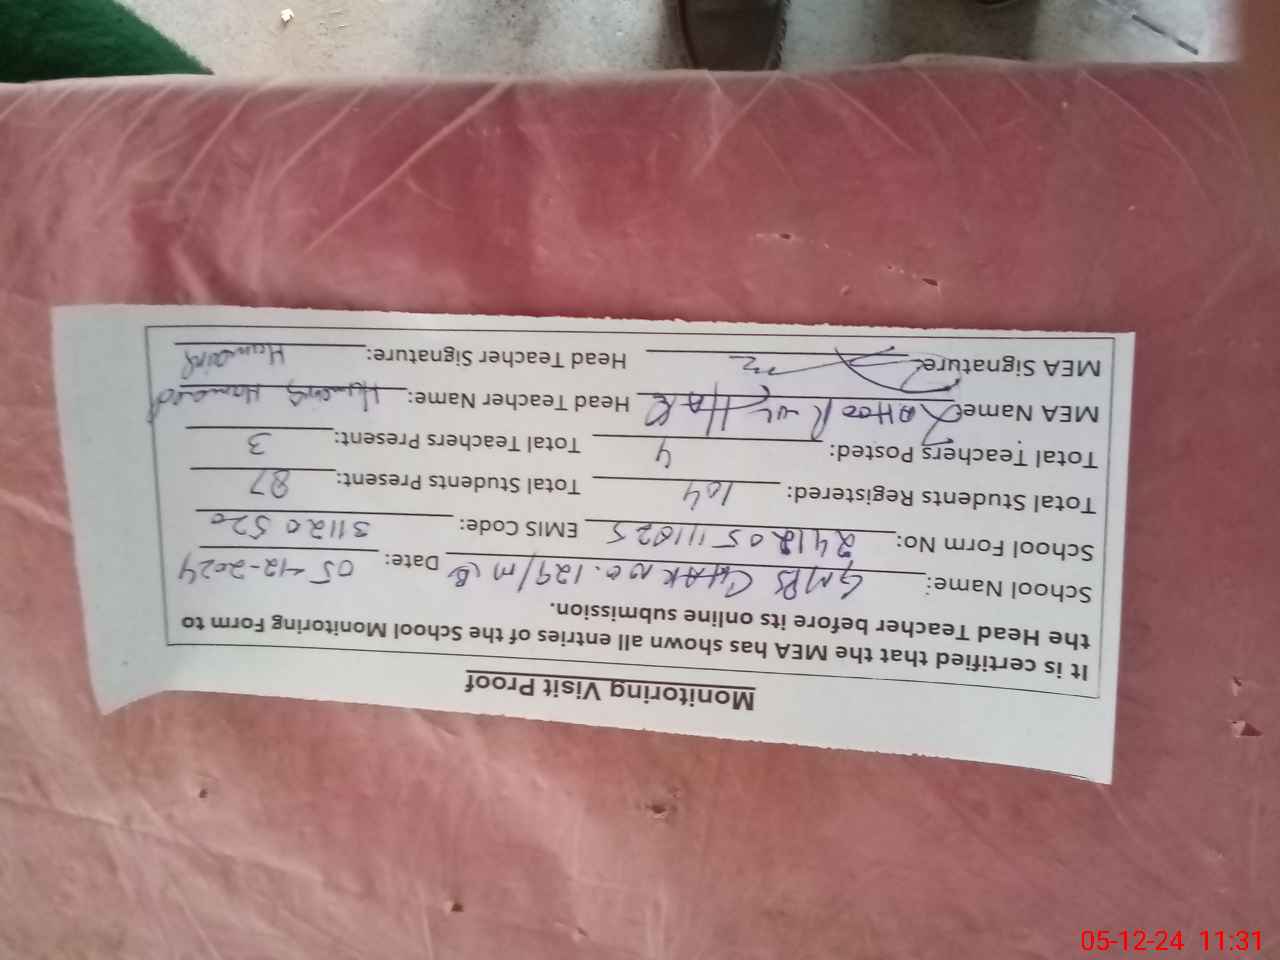 Monitoring Visit Proof
It is certified that the MEA has shown all entries of the School Monitoring Form to
the Head Teacher before its online submission.
School Name: GMPS CHAK No. 129/m B Date: 05-12-2024
School Form No: EMIS Code: 31120520
Total Students Registered: 104 Total Students Present: 87
Total Teachers Posted: 4 Total Teachers Present: 3
MEA Name: ul HAK Head Teacher Name: Hameed
MEA Signature: Head Teacher Signature: Humaira
05-12-24 11:31